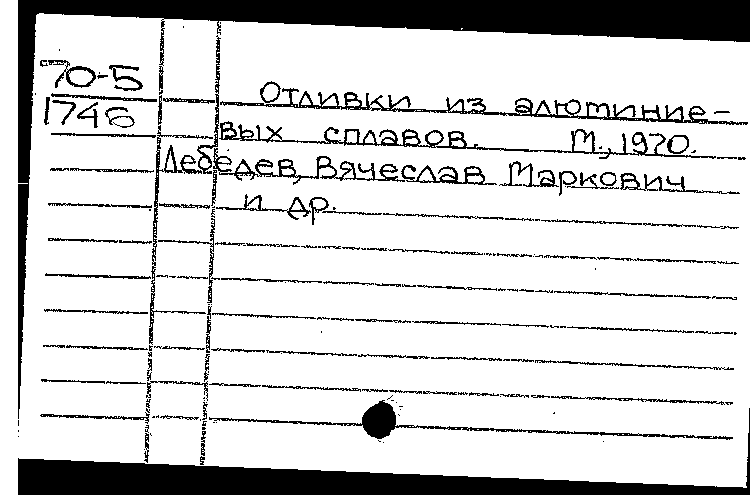 70-5
1746
Отливки из алюминие-
вых сплавов. М., 1970.
Лебедев, Вячеслав Маркович
и др.